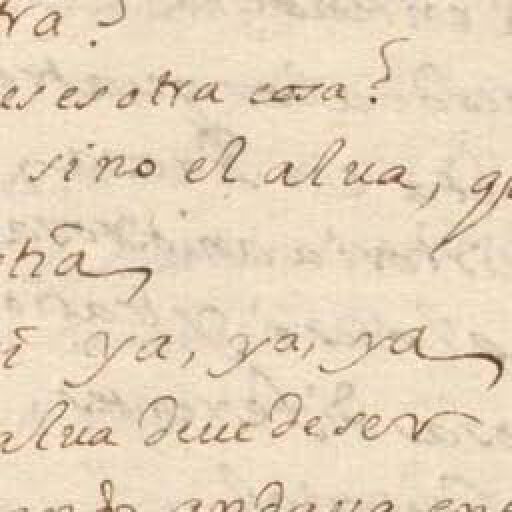 tra?
es es otra cosa?
sino el alua, qu
tia
i ya, ya, ya
alua deue de ser
andaua en